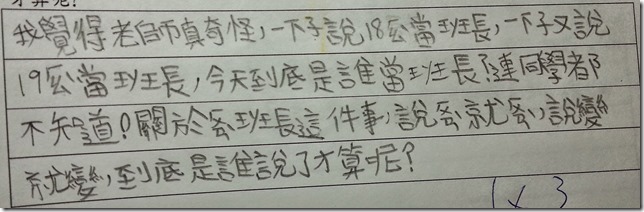 才算呢!
我覺得老師真奇怪,一下子說18公當班長,一下子又說
19公當班長,今天到底是誰當班長?連同學都
不知道!關於班長這件事,說就,說變
就變,到底是誰說了才算呢?
1x3